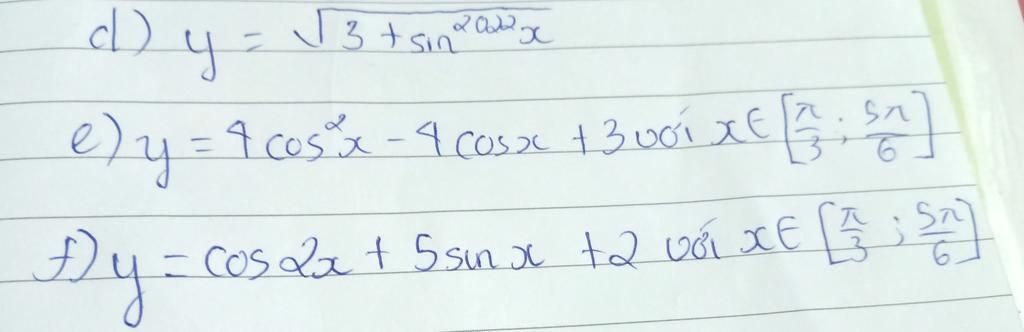 d) y = √(3 + sin²⁰²²x)
e) y = 4cos²x - 4cosx + 3 với x ∈ [π/3 ; 5π/6]
f) y = cos2x + 5sinx + 2 với x ∈ [π/3 ; 5π/6]